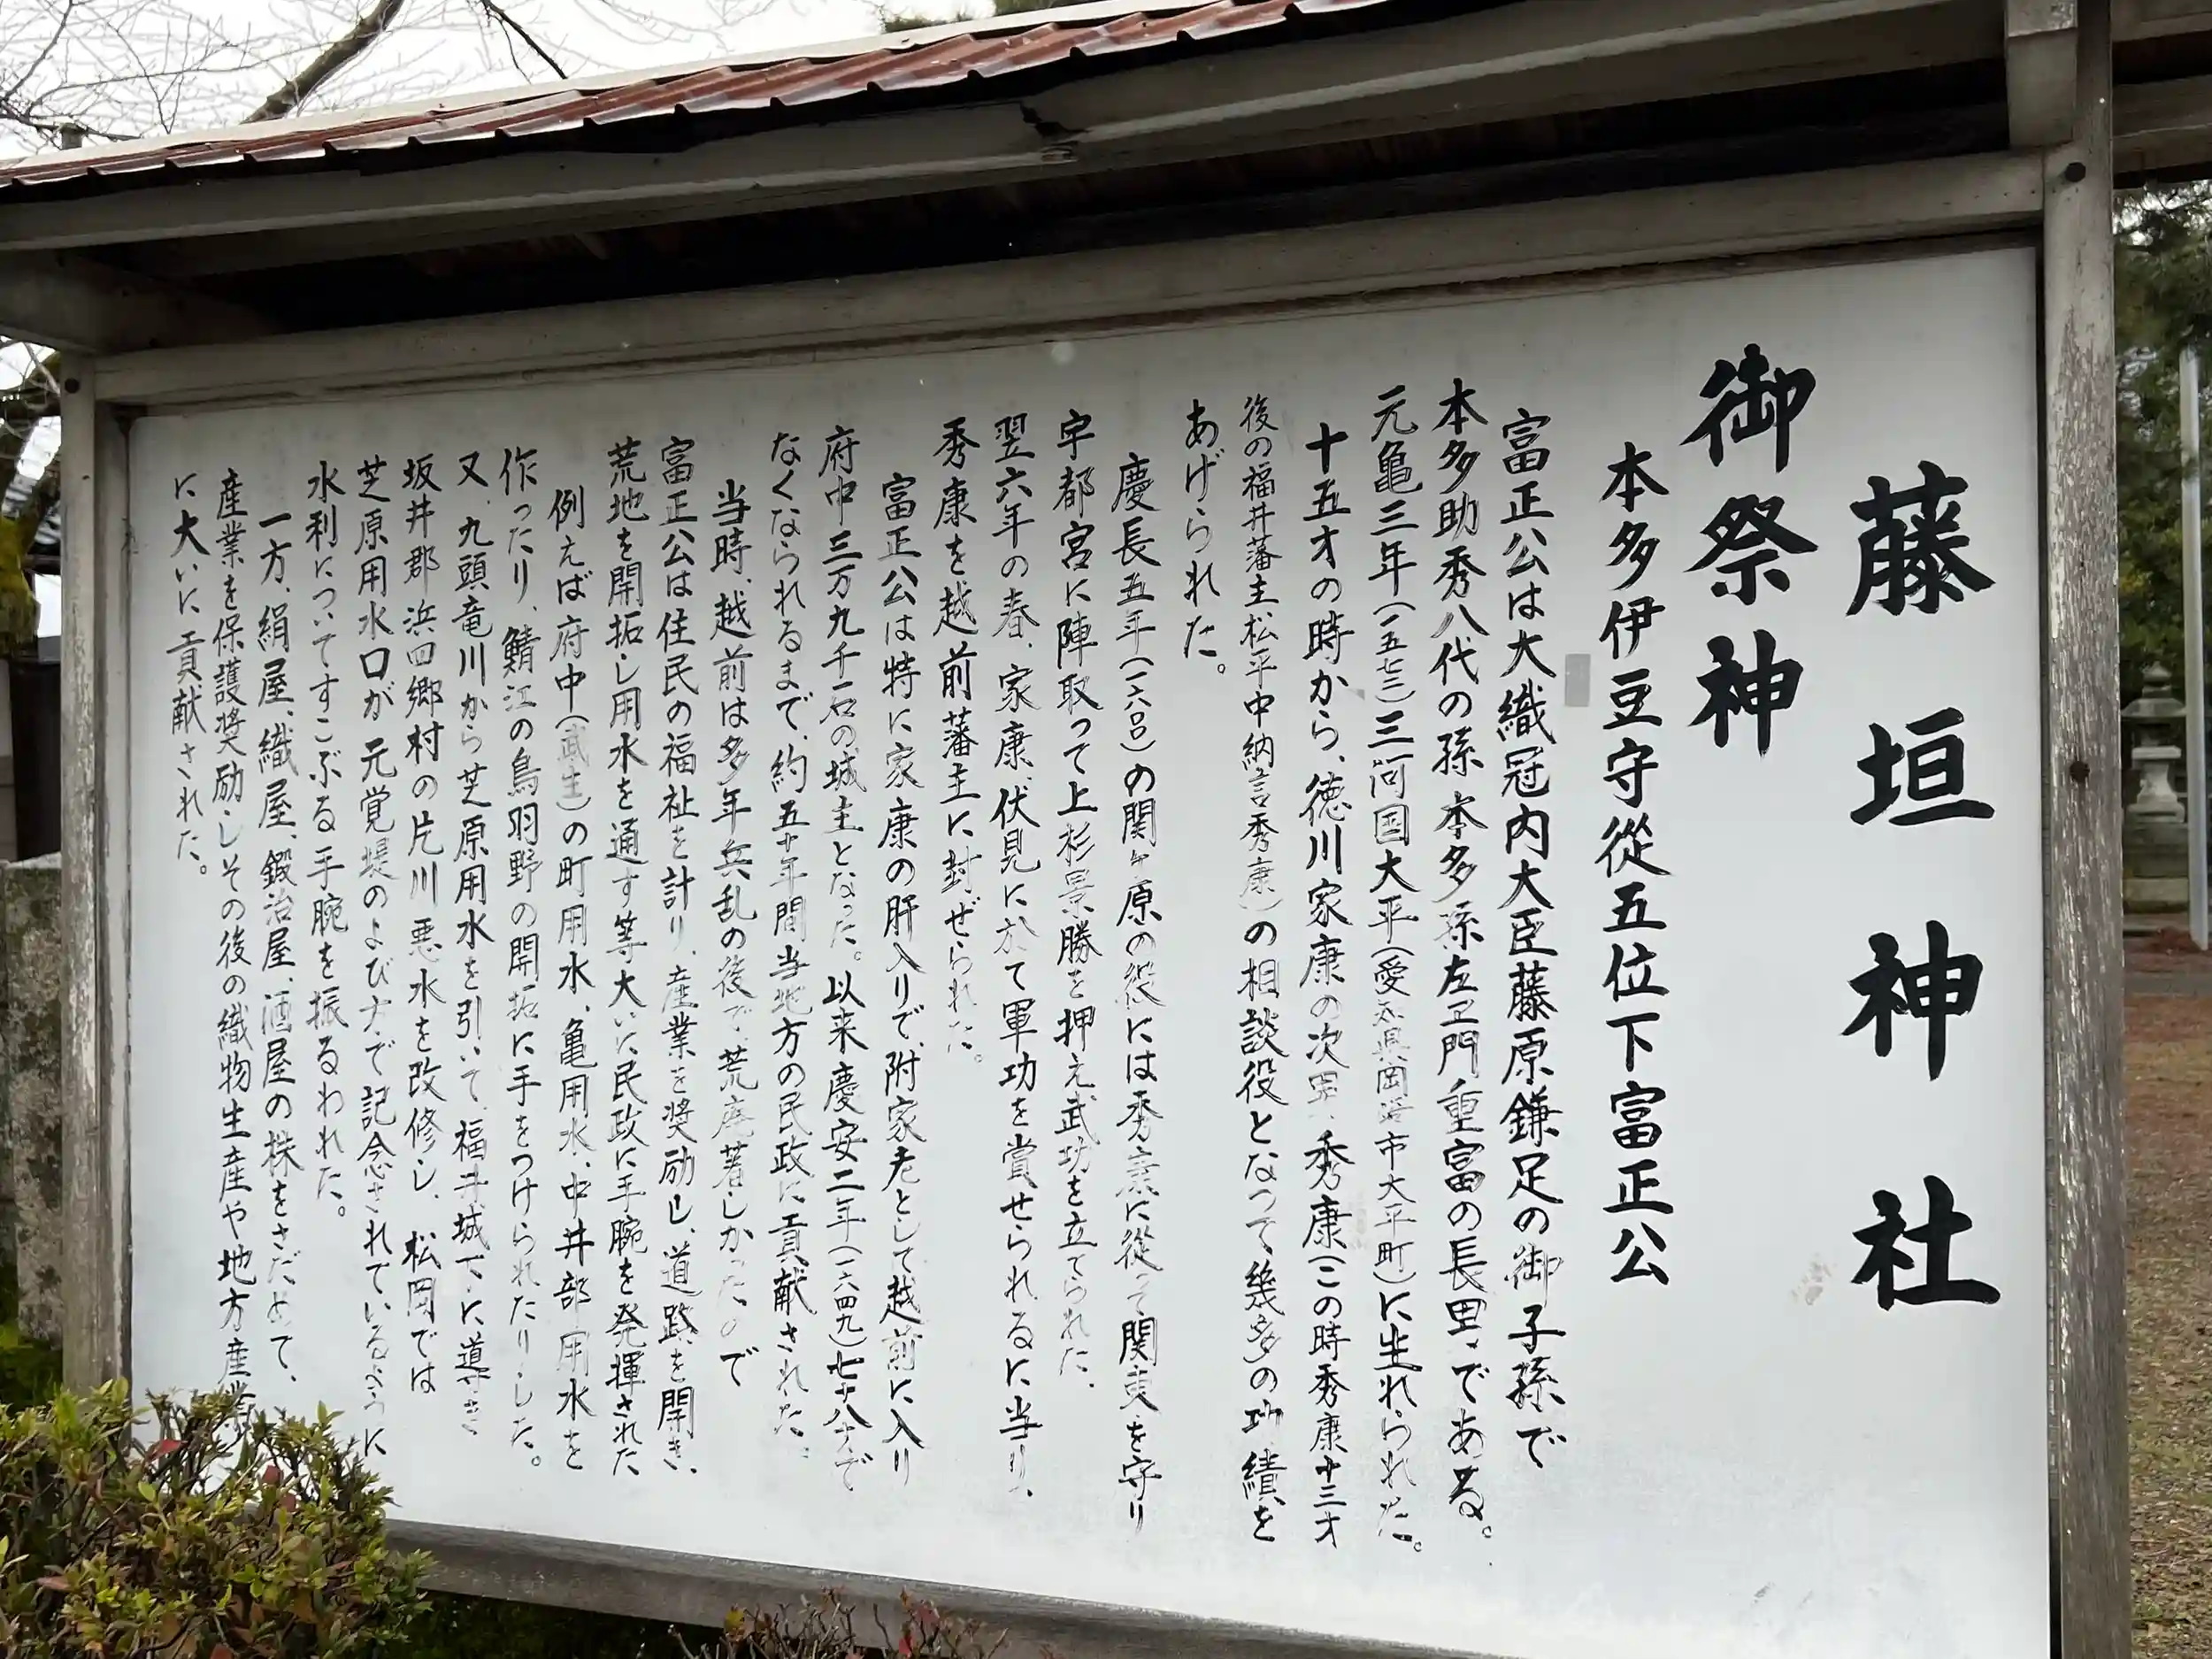 藤垣神社
御祭神
本多伊豆守從五位下富正公
富正公は大織冠内大臣藤原鎌足の御子孫で
本多助秀八代の孫本多孫左ヱ門重富の長男である。
元亀三年(一五七二)三河国大平(愛知県岡崎市大平町)に生れられた。
十五才の時から、徳川家康の次男、秀康(この時秀康十三才
後の福井藩主松平中納言秀康)の相談役となって幾多の功績を
あげられた。
慶長五年(一六〇〇)の関ヶ原の役には秀康に從って関東を守り
宇都宮に陣取って上杉景勝を押え武功を立てられた。
翌六年の春、家康、伏見に於て軍功を賞せられるに当り、
秀康を越前藩主に封ぜられた。
富正公は特に家康の肝入りで、附家老として越前に入り
府中三万九千石の城主となった。以来慶安二年(一六四九)七十八才で
なくなられるまで、約五十年間当地方の民政に貢献された。
当時、越前は多年兵乱の後で、荒廃著しかったので
富正公は住民の福祉を計り、産業を奨励し、道路を開き、
荒地を開拓し用水を通す等大いに民政に手腕を発揮された
例えば府中(武生)の町用水、亀用水、中井部用水を
作ったり、鯖江の鳥羽野の開拓に手をつけられたりした。
又、九頭竜川から芝原用水を引いて、福井城下に導き
坂井郡浜四郷村の片川悪水を改修し、松岡では
芝原用水口が元覚堤のよび方で記念されているように
水利についてすこぶる手腕を振るわれた。
一方、絹屋、織屋、鍛治屋、酒屋の株をさだめて、
産業を保護奨励しその後の織物生産や地方産業
に大いに貢献された。